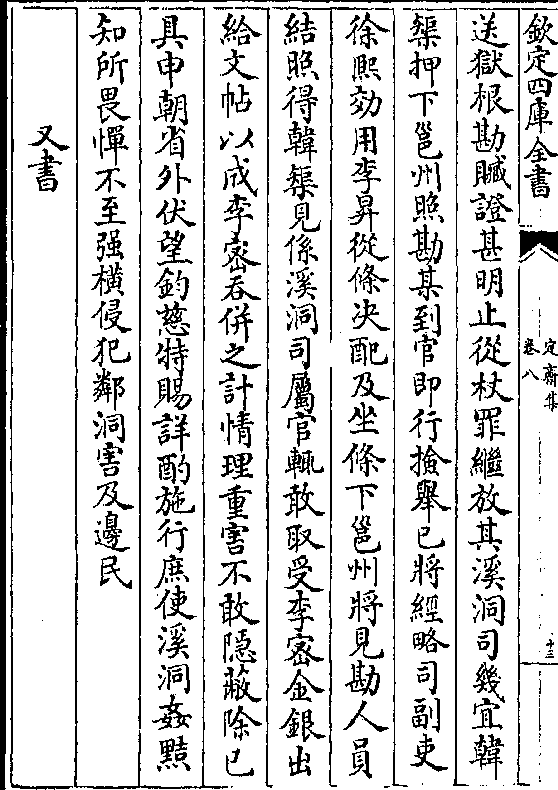 欽定四庫全書
定齋集
卷八
十三
送獄根勘贓證甚明止從杖罪繼放其溪洞司幾宜韓
槼押下邕州照勘某到官即行撿舉已將經略司副吏
徐熈効用李昇從條決配及坐條下邕州將見勘人員
結照得韓槼見係溪洞司屬官輒敢取受李宻金銀出
給文帖以成李宻吞併之計情理重害不敢隱蔽除已
具申朝省外伏望鈞慈特賜詳酌施行庶使溪洞姦黠
知所畏憚不至强横侵犯鄰洞害及邊民
又書